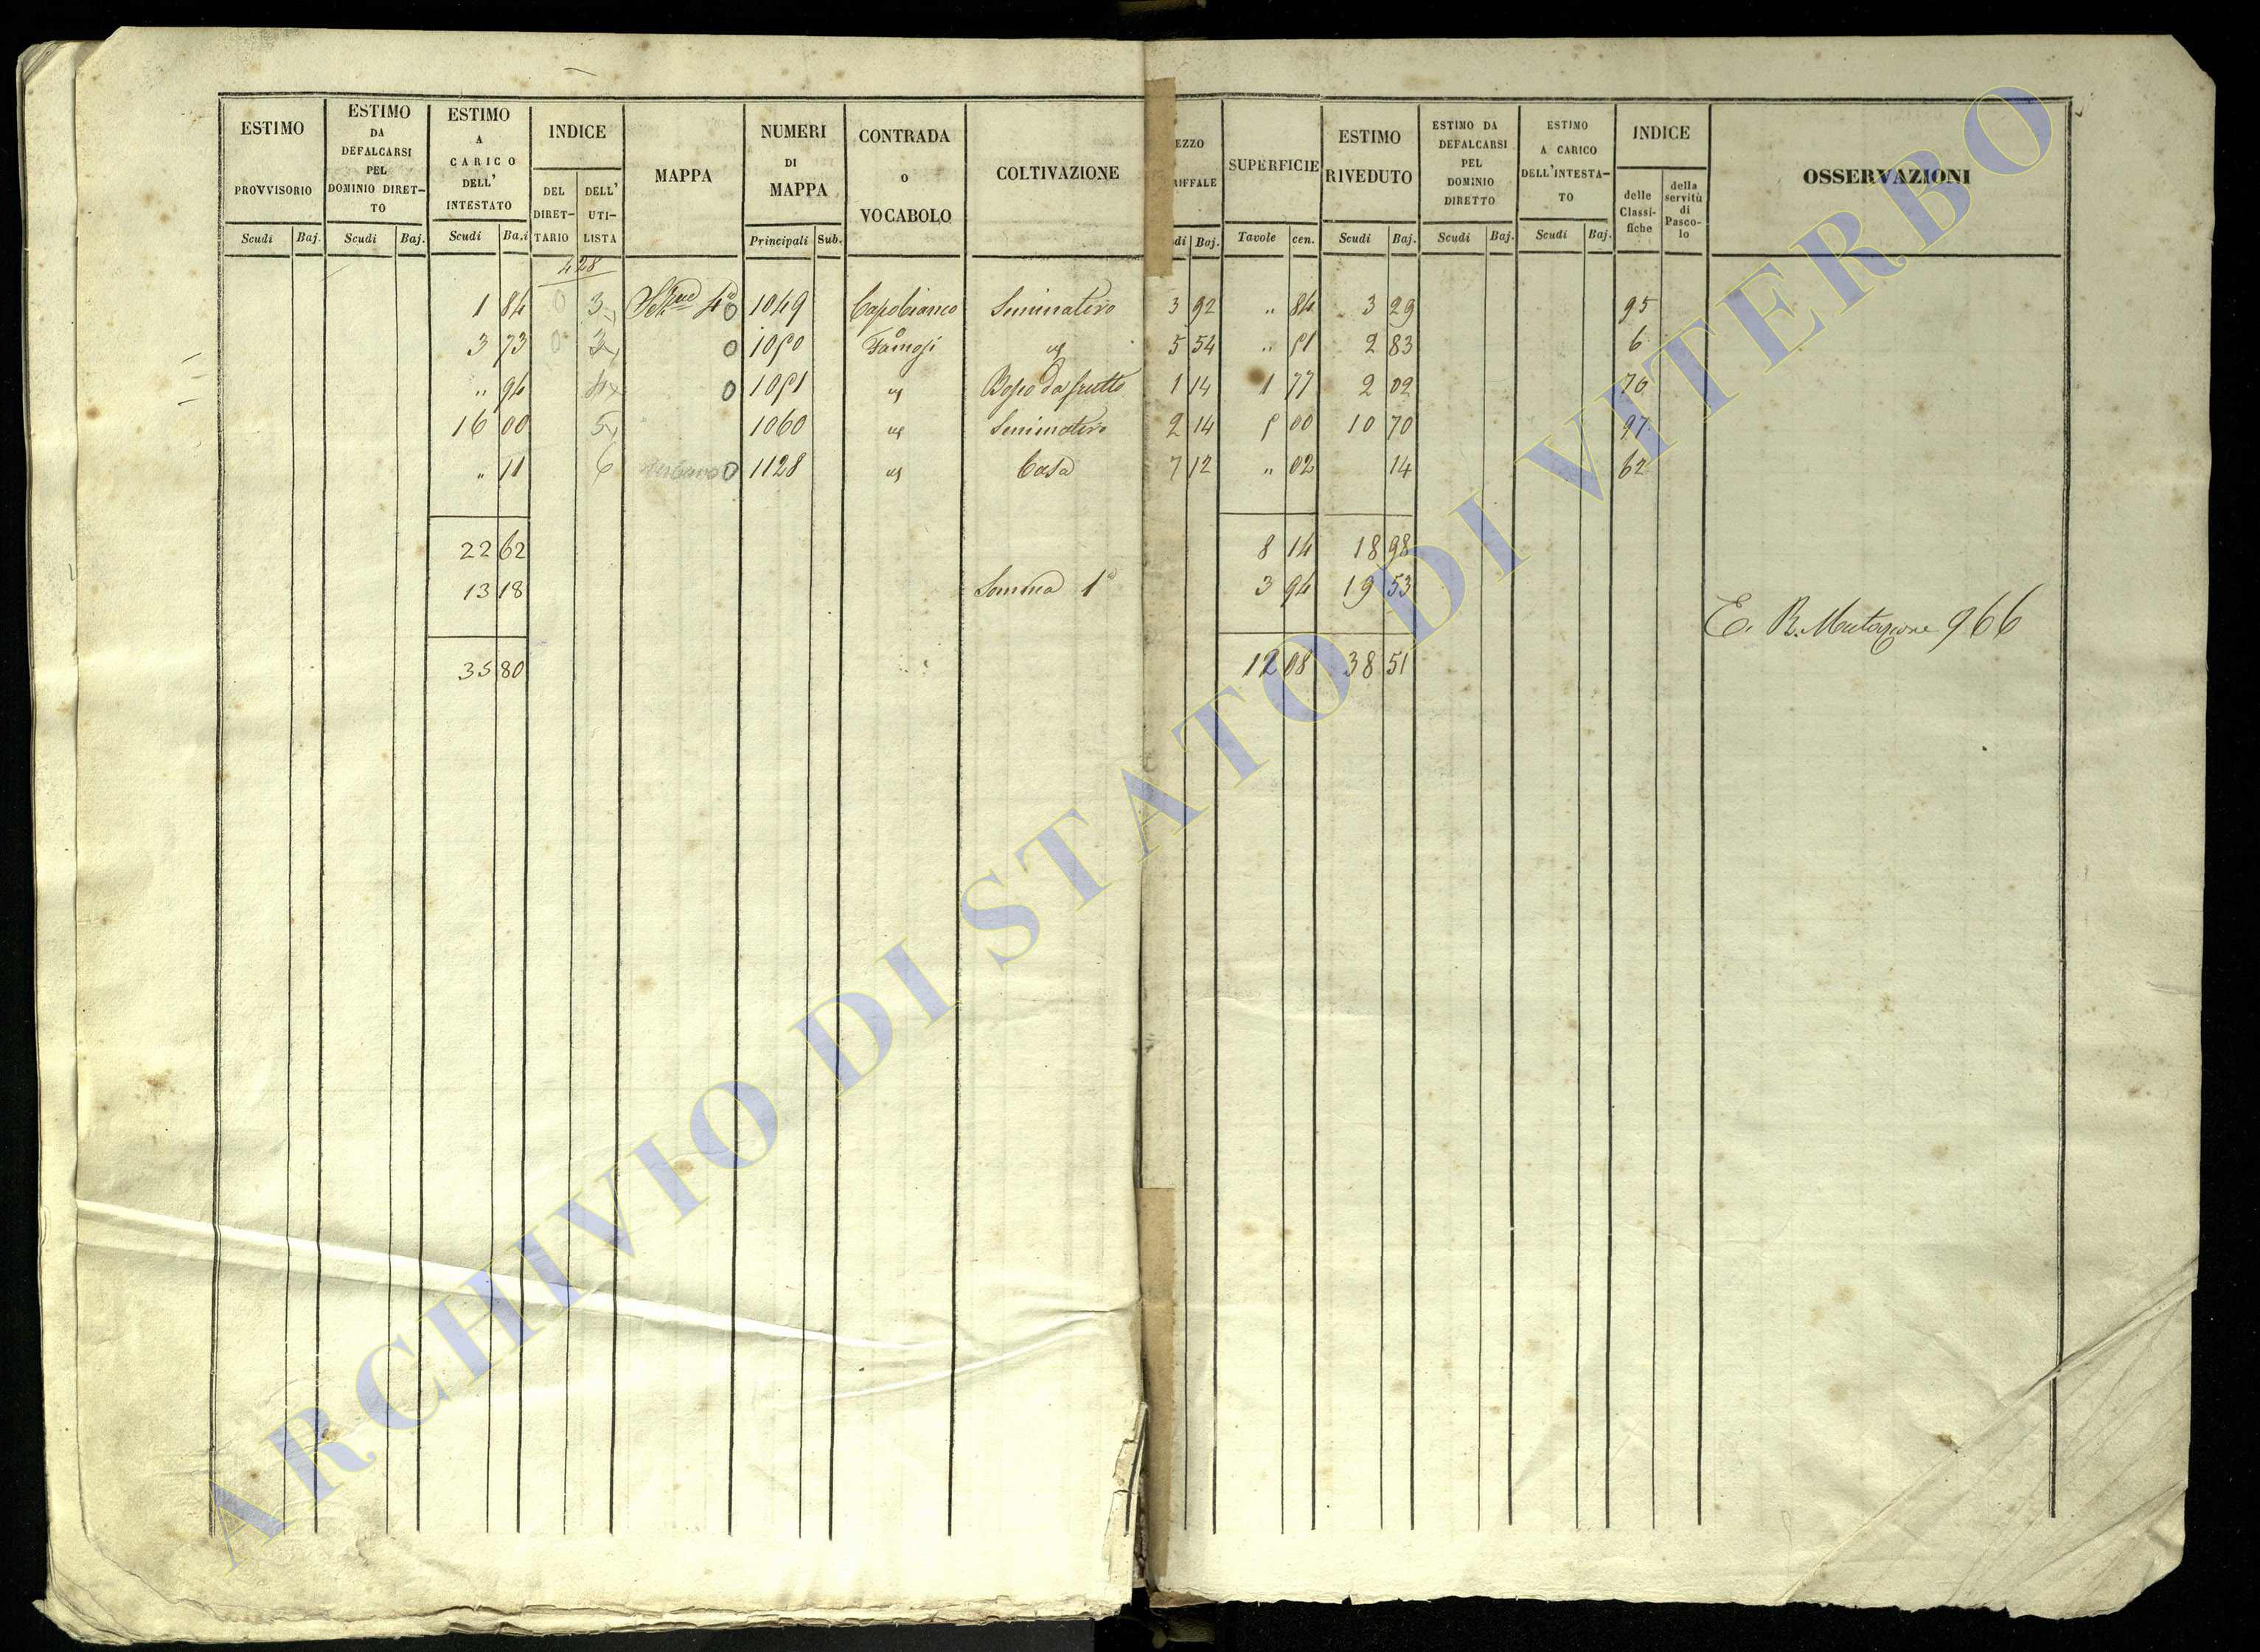 ESTIMO PROVVISORIO
ESTIMO DA DEFALCARSI PEL DOMINIO DIRET-TO
ESTIMO A CARICO DELL' INTESTATO
INDICE
DEL DIRET-TARIO
DELL' UTI-LISTA
MAPPA
NUMERI DI MAPPA
CONTRADA o VOCABOLO
COLTIVAZIONE
EZZO RIFFALE
SUPERFICIE
ESTIMO RIVEDUTO
ESTIMO DA DEFALCARSI PEL DOMINIO DIRETTO
ESTIMO A CARICO DELL'INTESTA-TO
INDICE
delle Classi-fiche
della servitù di Pasco-lo
OSSERVAZIONI
Scudi Baj. Scudi Baj. Scudi Baj. Principali Sub. di Baj. Tavole cen. Scudi Baj. Scudi Baj. Scudi Baj.
428
1 84 0 3 4a 0 1049 Capobianco Seminativo 3 92 " 84 3 29 95
3 73 0 3 0 1050 " 5 54 " 51 2 83 6
" 94 4 0 1051 " Bosco da frutto 1 14 1 77 2 02 76
16 00 5 1060 " Seminativo 2 14 5 00 10 70 97
" 11 6 0 1128 " Casa 7 12 " 02 14 62
22 62 8 14 18 98
13 18 Somma 1a 3 94 19 53
E. R. Mutazione 966
35 80 12 08 38 51
ARCHIVIO DI STATO DI VITERBO